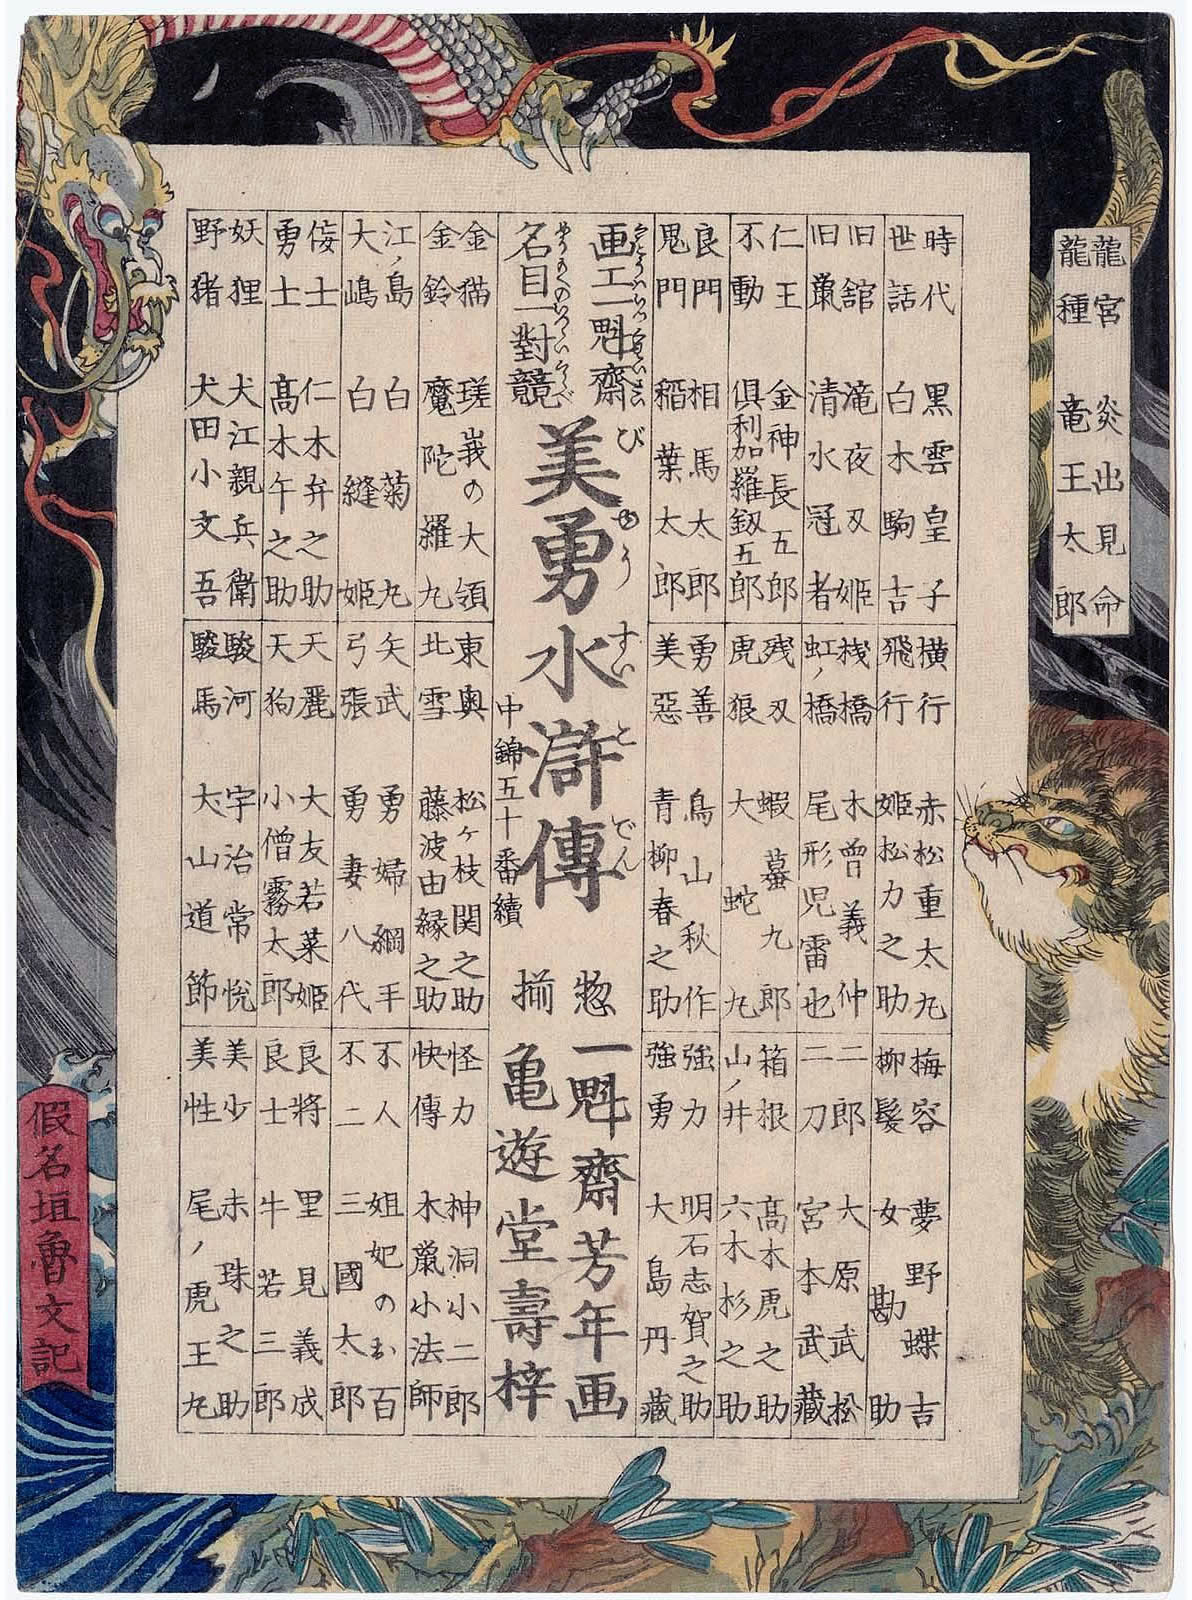 龍宮 炎出見命
龍種 竜王太郎
時代 黒雲皇子
世話 白木駒吉
旧舘 滝夜叉姫
旧巣 清水冠者
仁王 金神長五郎
不動 倶利加羅釼五郎
良門 相馬太郎
鬼門 稲葉太郎
横行 赤松重太丸
飛行 姫松力之助
桟橋 木曽義仲
虹ノ橋 尾形児雷也
残刄 蝦蟇九郎
虎狼 大蛇丸
勇善 鳥山秋作
美惡 青柳春之助
梅容 夢野蝶吉
柳髪 女勘助
二郎 大原武松
二刀 宮本武藏
箱根 髙木虎之助
山ノ井 六木杉之助
強力 明石志賀之助
強勇 大島丹藏
画工一魁齋
名目一對競
美勇水滸傳
び ゆう すい こ でん
中錦五十番續
惣
揃
一魁齋芳年画
亀遊堂壽梓
金猫 瑳峩の大領
金鈴 魔陀羅丸
江ノ島 白菊丸
大嶋 白縫姫
侫士 仁木弁之助
勇士 髙木午之助
妖狸 犬江親兵衛
野猪 犬田小文吾
東奥 松ヶ枝関之助
北雪 藤波由縁之助
矢武 勇婦綱手
弓張 勇妻八代
天麗 大友若菜姫
天狗 小僧霧太郎
駿河 宇治常悦
駿馬 大山道節
怪力 神洞小二郎
快傳 木鼠小法師
不人 妲妃のお百
不二 三國太郎
良將 里見義成
良士 牛若三郎
美少 赤珠之助
美性 尾ノ虎王丸
假名垣魯文記